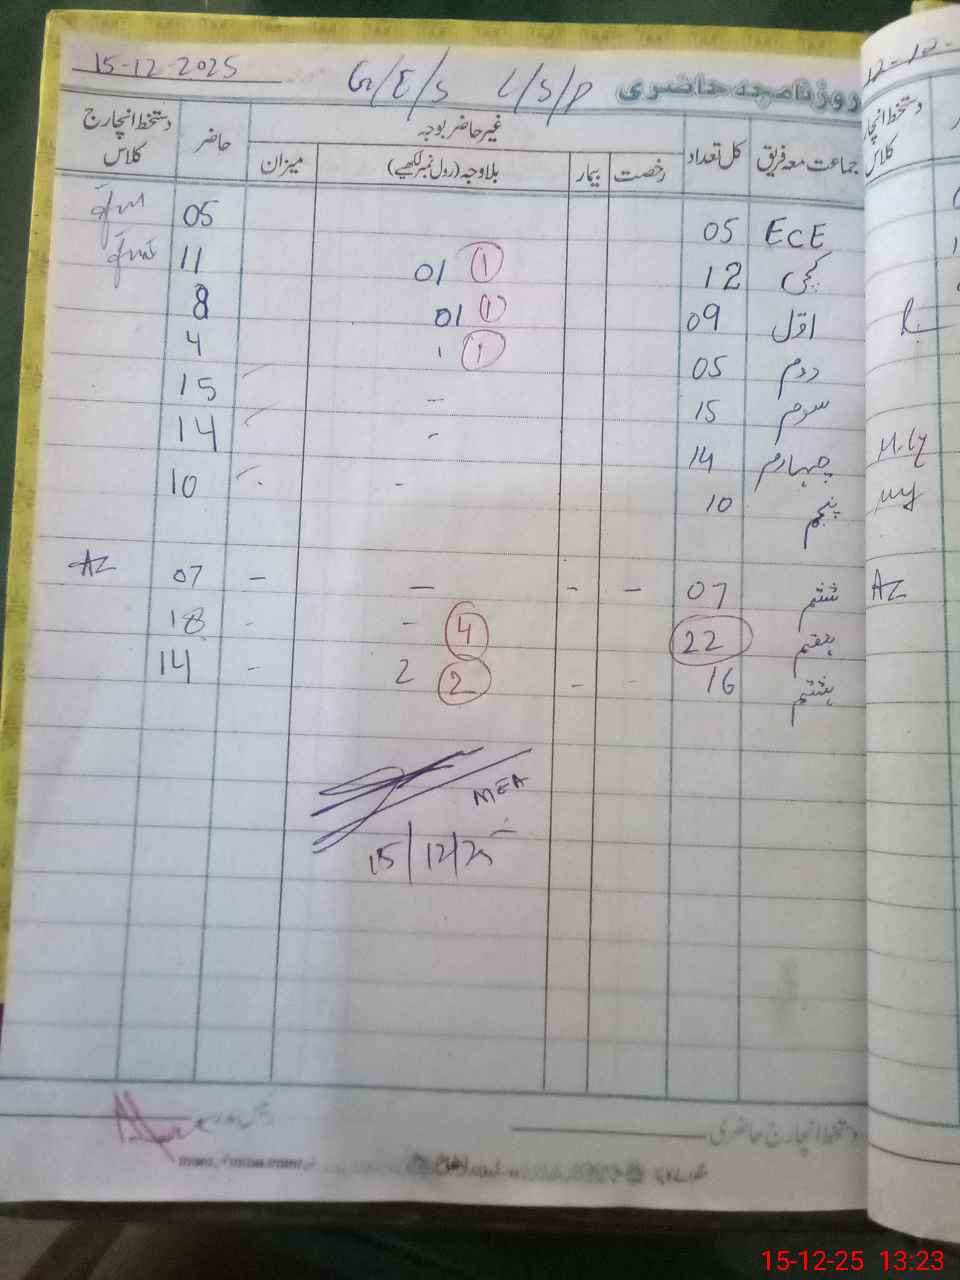 15-12-2025 G/E/S L/S/P روزنامچہ حاضری
جماعت معہ فریق کل تعداد غیر حاضر بوجہ حاضر دستخط انچارج کلاس
رخصت بیمار بلاوجہ (رول نمبر لکھیے) میزان
ECE 05 05
کچی 12 01 1 11
اول 09 01 1 8
دوم 05 1 1 4
سوم 15 - 15
چہارم 14 - 14
پنجم 10 - 10
ششم 07 - - - - 07 AZ
ہفتم 22 4 - - 18
ہشتم 16 - - 2 2 - 14
MEA
15/12/25
دستخط انچارج حاضری
12-12-
دستخط انچارج
کلاس
AZ
15-12-25 13:23